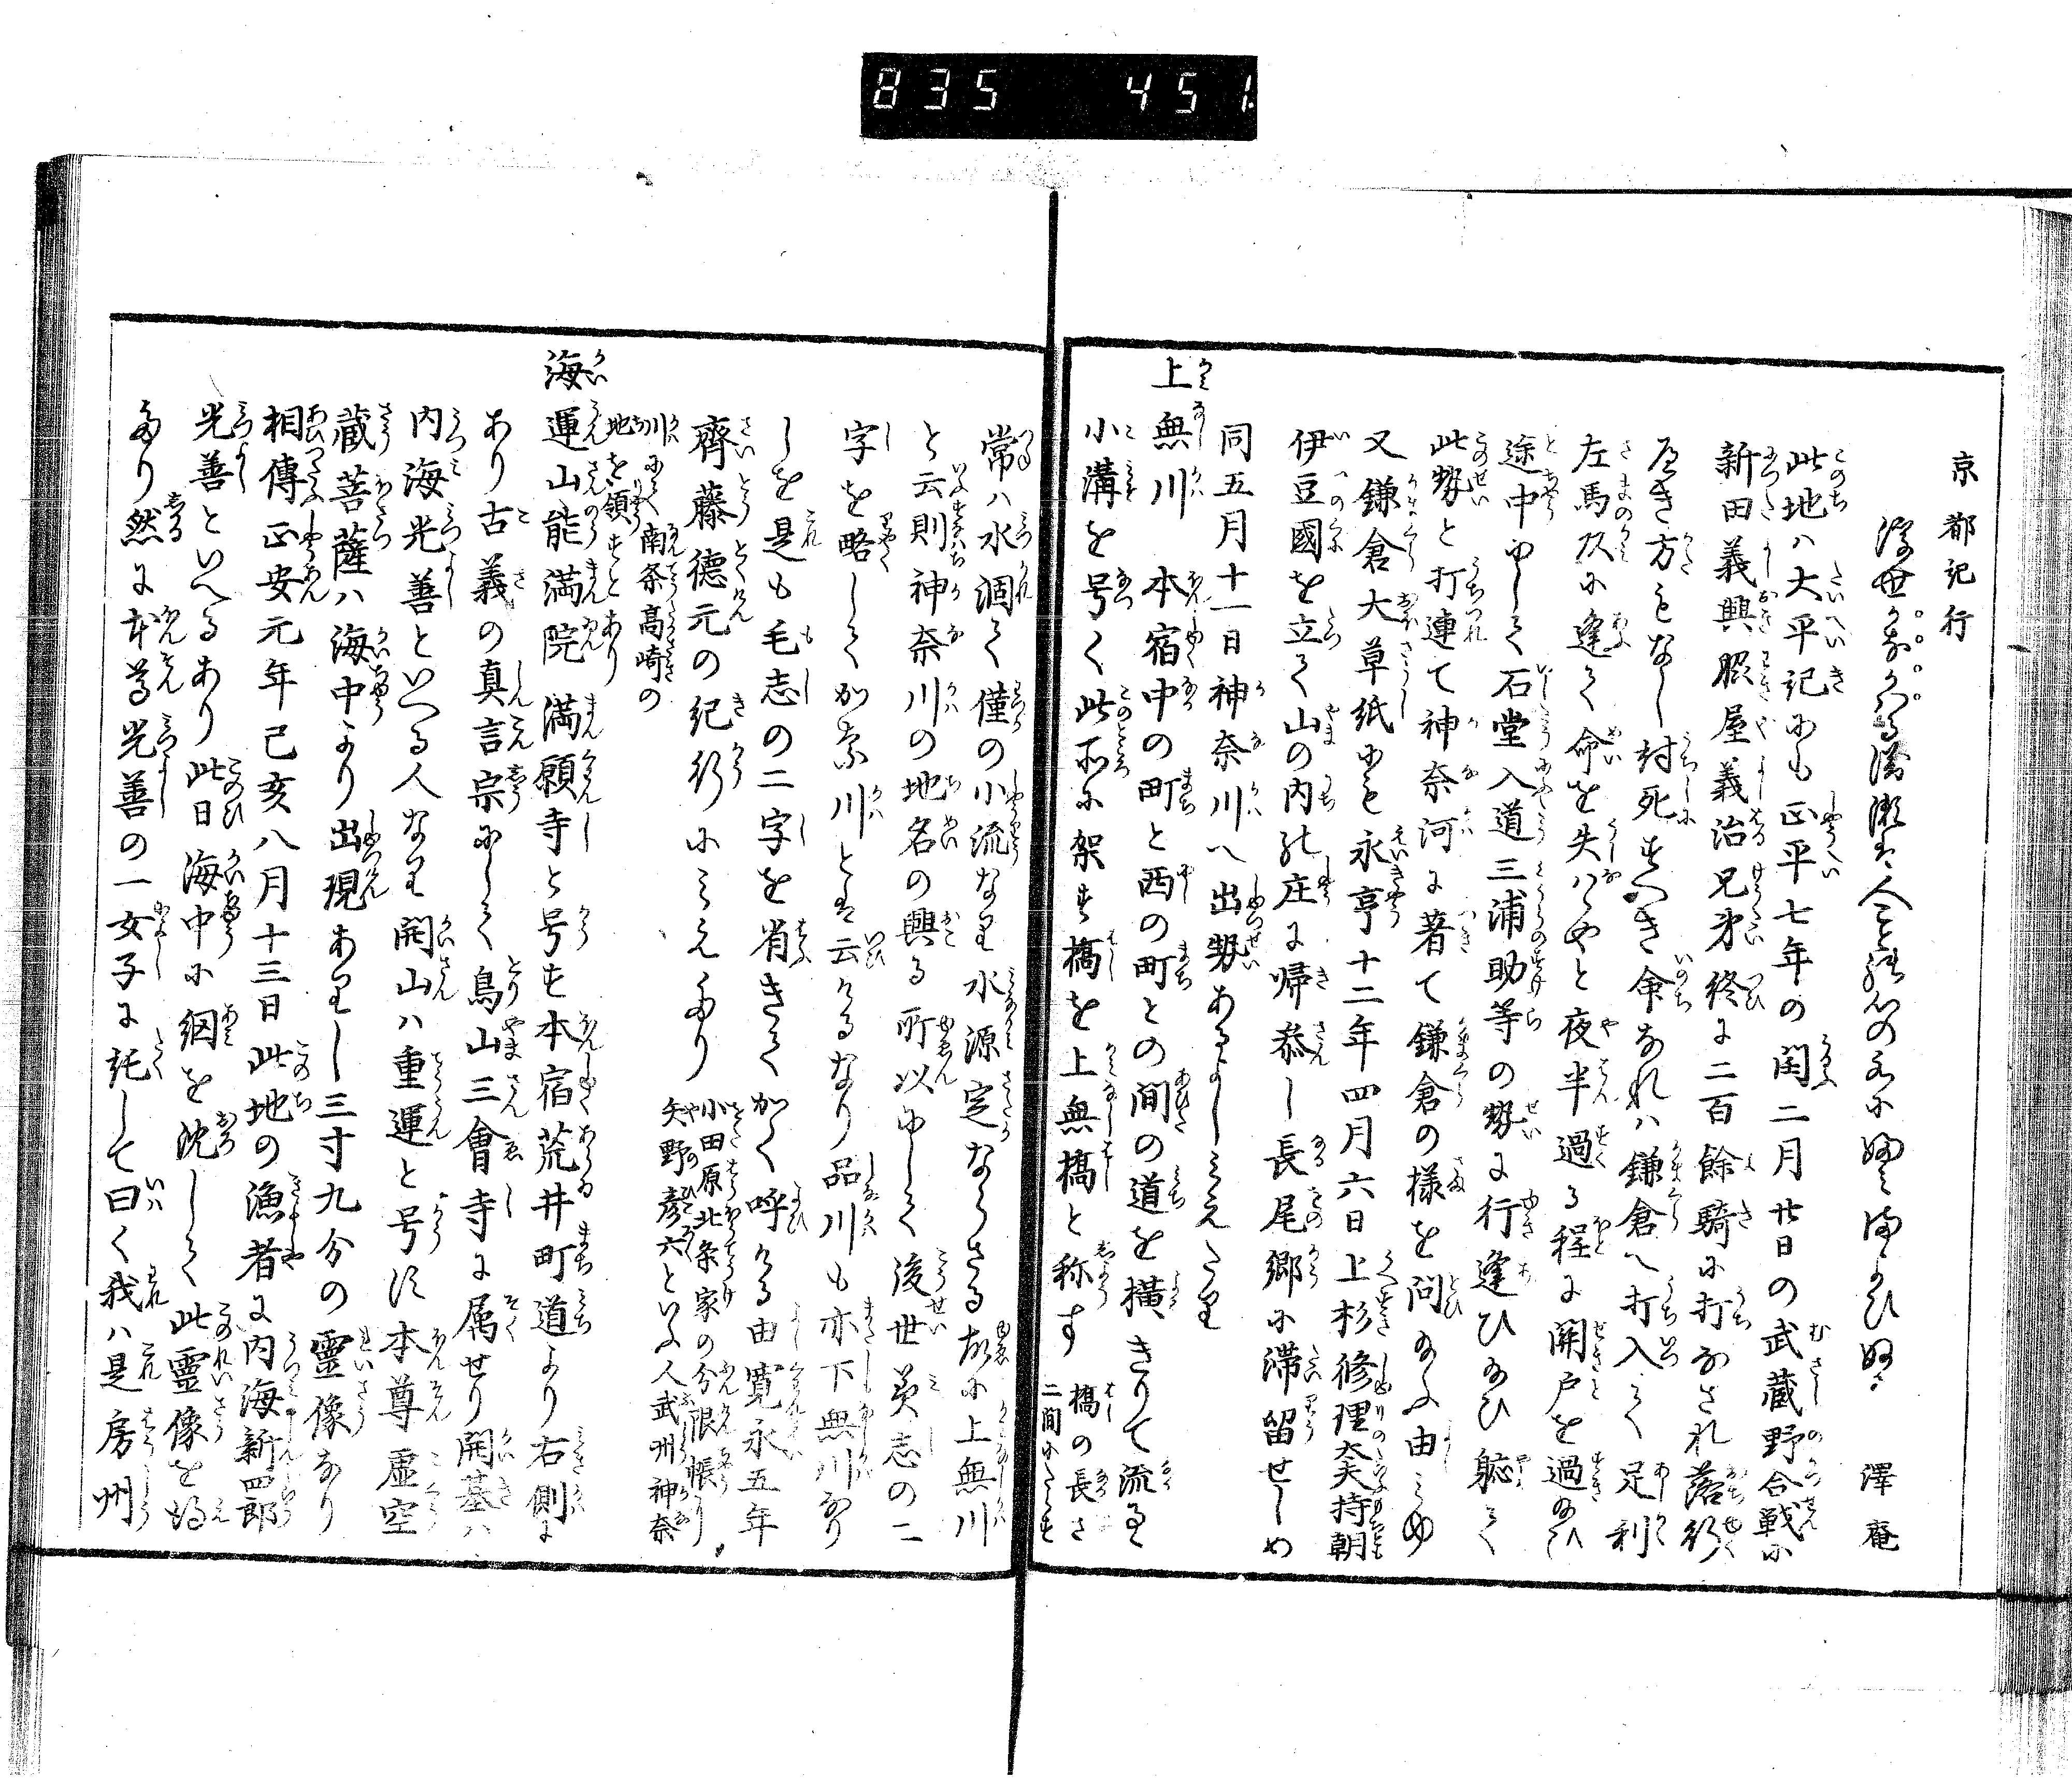 835 451
京都記行
澤庵
此地ハ大平記にも正平七年の閏二月廿日の武蔵野合戦に
新田義興脇屋義治兄弟終に二百餘騎に打なされ落行
へき方もなし討死すへき命なれハ鎌倉へ打入て足利
左馬頭に逢て命を失ハゝやと夜半過る程に関戸を過給ハ
途中にして石堂入道三浦助等の勢に行逢ひ給ひ軈て
此勢と打連て神奈河に著て鎌倉の様を問給ふ由みゆ
又鎌倉大草紙にも永亨十二年四月六日上杉修理大夫持朝
伊豆國を立て山の内の庄に帰参し長尾郷に滞留せしめ
同五月十一日神奈川へ出勢あるよしみえたり
上無川 本宿中の町と西の町との間の道を横きりて流るゝ
小溝を号く此所に架す橋を上無橋と称す 橋の長さ
二間にたらす
常ハ水涸て僅の小流なり水源定ならさる故に上無川
と云則神奈川の地名の興る所以にして後世美志の二
字を略してかな川とは云けるなり品川も亦下無川なり
しを是も毛志の二字を省きてかく呼ける由寛永五年
齊藤徳元の紀行にみえたり 小田原北条家の分限帳に
矢野彦六といふ人武州神奈
川にて南条高崎の
地を領すとあり
海運山能満院 満願寺と号す本宿荒井町道より右側に
あり古義の真言宗にして鳥山三會寺に属せり開基ハ
内海光善といへる人なり開山ハ重運と号す本尊虚空
蔵菩薩ハ海中より出現ありし三寸九分の靈像なり
相傳正安元年己亥八月十三日此地の漁者に内海新四郎
光善といへるあり此日海中に網を沈して此靈像を得
たり然に本尊光善の一女子に託して曰く我ハ是房州